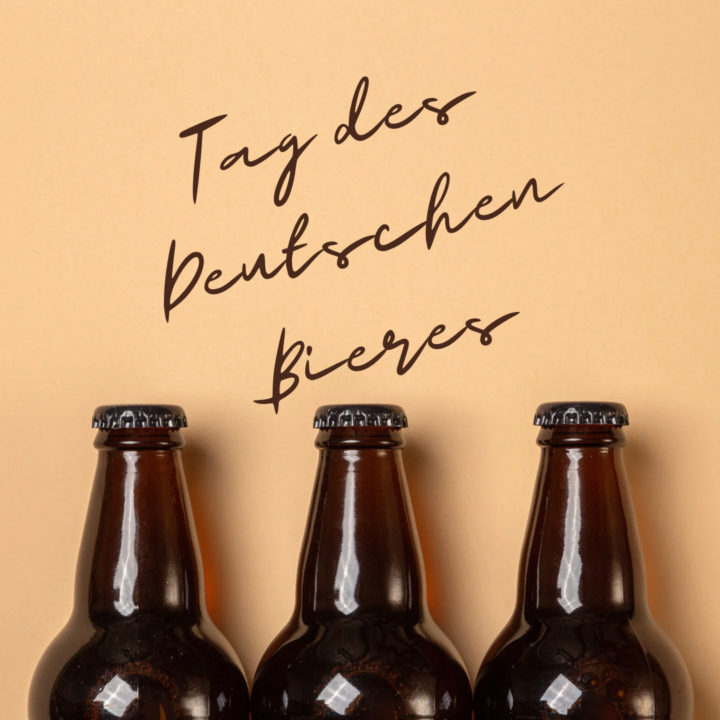 Tag des
Deutschen
Bieres